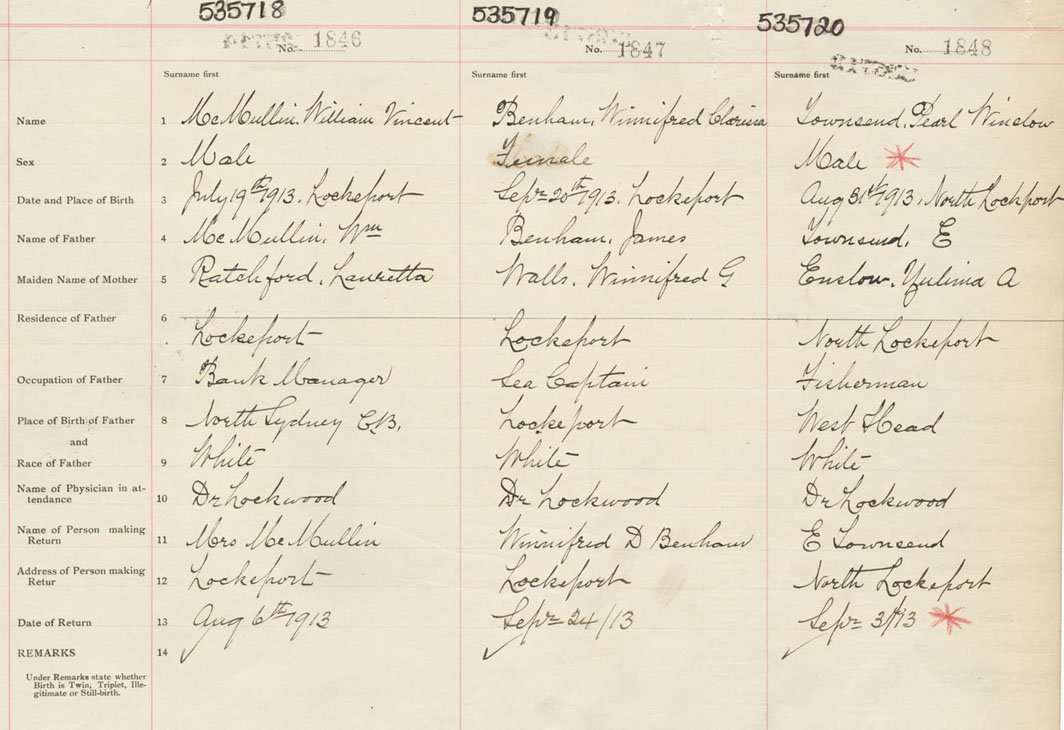 535718 535719 535720
No. 1846 No. 1847 No. 1848
Surname first Surname first Surname first
Name 1 McMullin, William Vincent Benham, Winnifred Clarissa Townsend, Pearl Winslow
Sex 2 Male Female Male
Date and Place of Birth 3 July 19th 1913. Lockeport Sepr 20th 1913. Lockeport Aug 31st 1913, North Lockport
Name of Father 4 McMullin, Wm Benham, James Townsend, E
Maiden Name of Mother 5 Ratchford, Lauretta Walls, Winnifred G Enslow, A
Residence of Father 6
Lockeport Lockeport North Lockeport
Occupation of Father 7 Bank Manager Sea Captain Fisherman
Place of Birth of Father 8 North Sydney C.B. Lockeport West Head
and
Race of Father 9 White White White
Name of Physician in at-
tendance 10 Dr Lockwood Dr Lockwood Dr Lockwood
Name of Person making
Return 11 Mrs McMullin Winnifred D Benham E Townsend
Address of Person making
Retur 12 Lockeport Lockeport North Lockeport
Date of Return 13 Aug 6th 1913 Sepr 24/13 Sepr 3/13
REMARKS 14
Under Remarks state whether
Birth is Twin, Triplet, Ille-
gitimate or Still-birth.